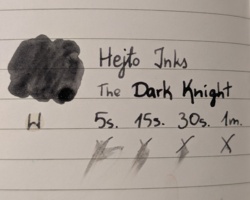 Hejto Inks
The Dark Knight
W 5s. 15s. 30s. 1m.
X X X X